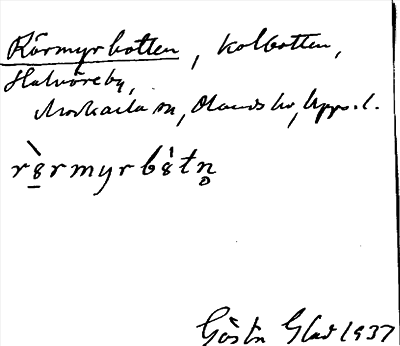 Rörmyrbotten, Kolbotten,
Halvöreby,
Morkarla sn, Olands hd, Upps. l.
rö̀rmyrbètn̥
Gösta Glad 1937